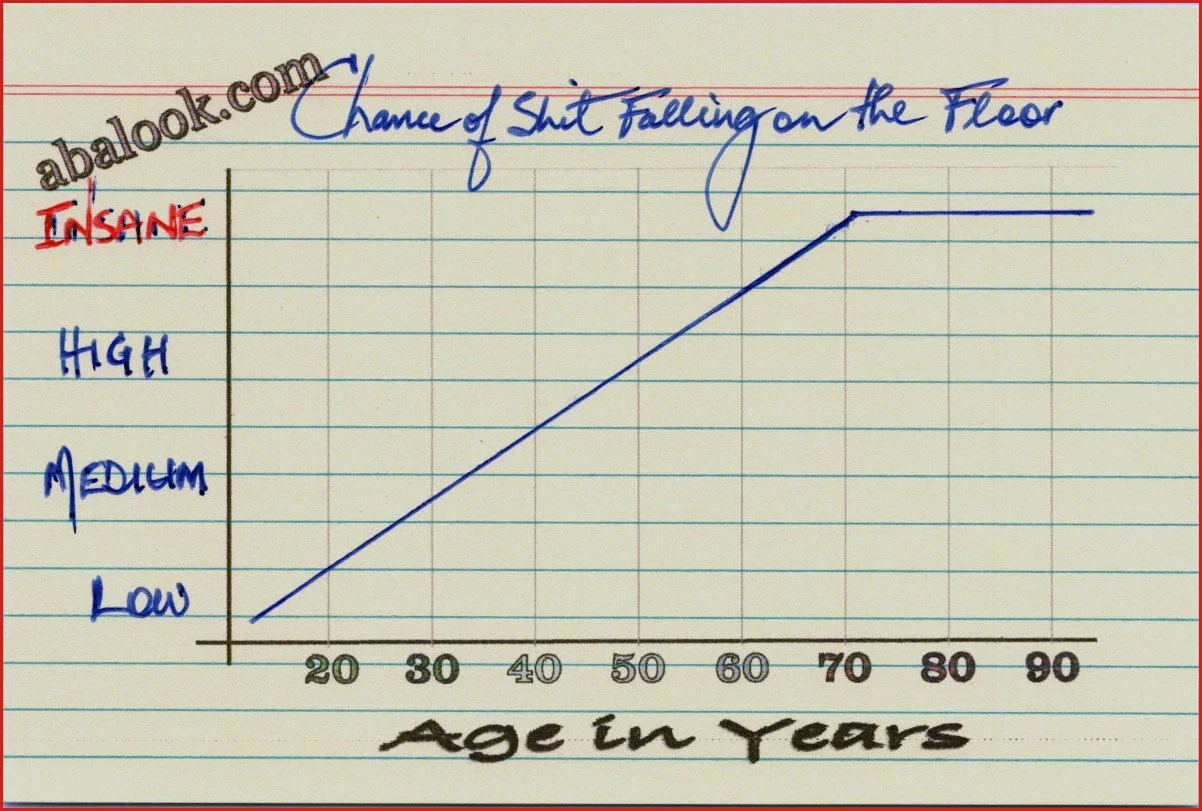 abalook.com
Chance of Shit Falling on the Floor
INSANE
HIGH
MEDIUM
LOW
20 30 40 50 60 70 80 90
Age in Years